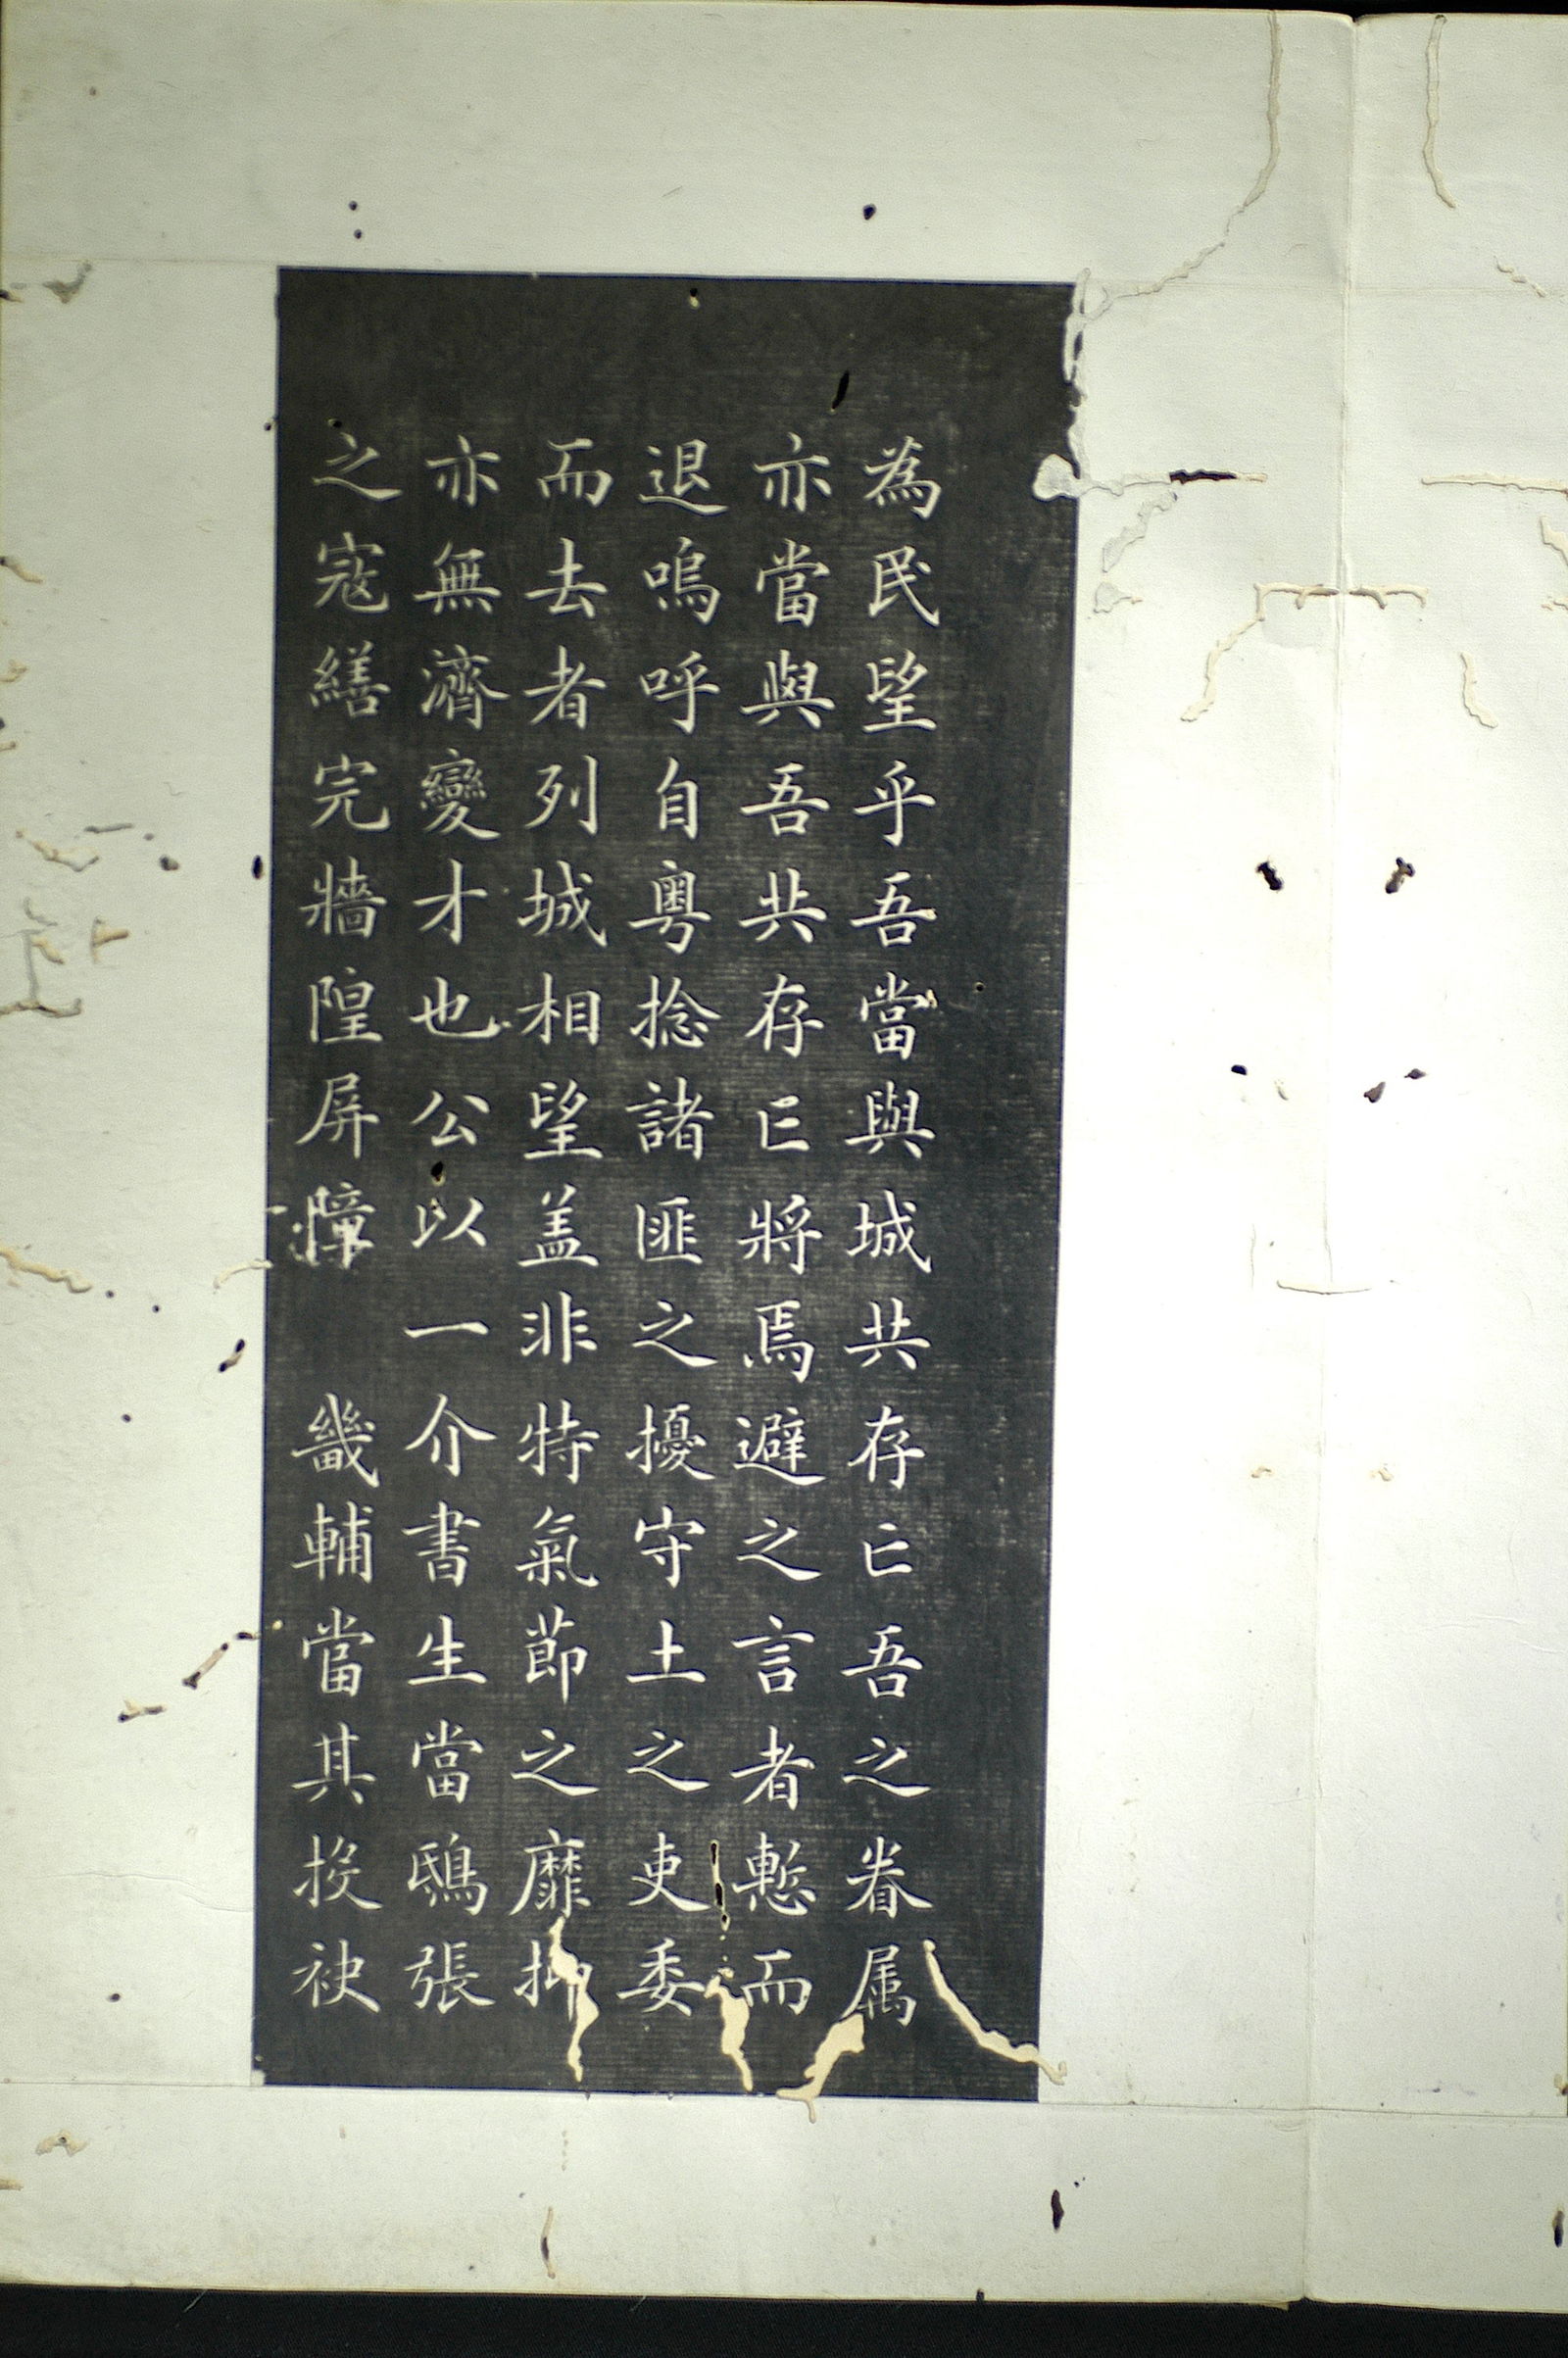 為民望乎吾當與城共存亡吾之眷属
亦當與吾共存亡將焉避之言者慙而
退嗚呼自粵捻諸匪之擾守土之吏委
而去者列城相望盖非特氣節之靡抑
亦無濟變才也公以一介書生當鴟張
之寇繕完牆隍屏障 畿輔當其投袂